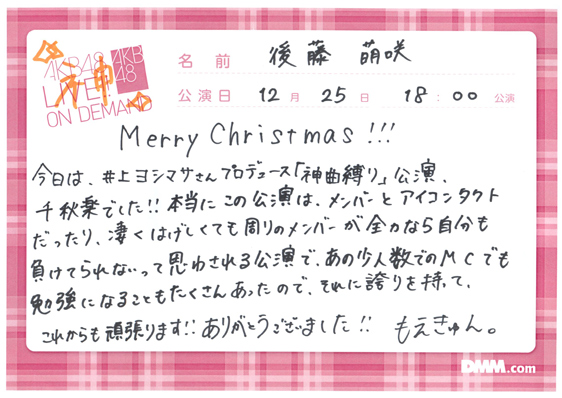 AKB48
LIVE!!
ON DEMAND
AKB
48
神
名前 後藤 萌咲
公演日 12月 25日 18:00公演
Merry Christmas!!!
今日は、井上ヨシマサさんプロデュース「神曲縛り」公演、
千秋楽でした!!本当にこの公演は、メンバーとアイコンタクト
だったり、凄くはげしくても周りのメンバーが全力なら自分も
負けてられないって思わされる公演で、あの少人数でのMCでも
勉強になることもたくさんあったので、それに誇りを持って、
これからも頑張ります!!ありがとうございました!! もえきゅん。
DMM.com